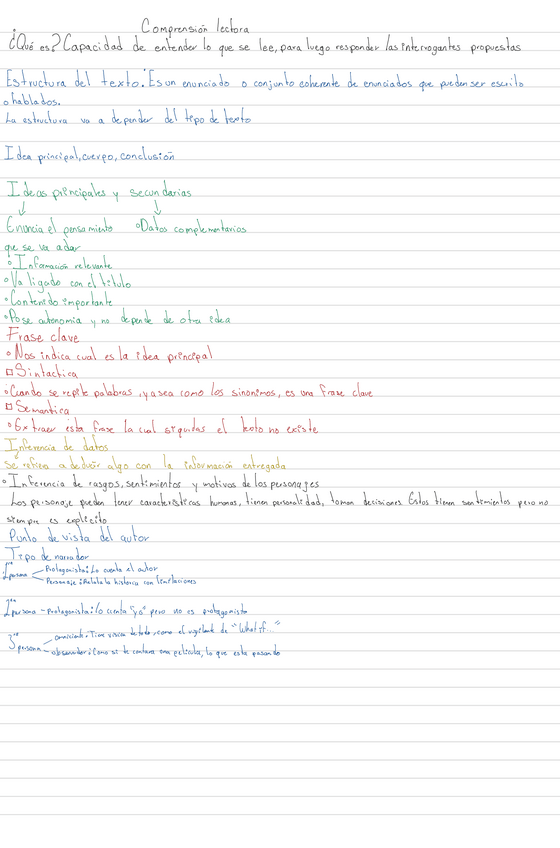 Comprensión lectora
¿Qué es? Capacidad de entender lo que se lee, para luego responder las interrogantes propuestas
Estructura del texto: Es un enunciado o conjunto coherente de enunciados que pueden ser escrito
o hablados.
La estructura va a depender del tipo de texto
Idea principal, cuerpo, conclusión
Ideas principales y secundarias
Enuncia el pensamiento °Datos complementarios
que se va a dar
°Infamación relevante
°Va ligado con el titulo
°Contenido importante
°Pose autonomia y no depende de otra idea
Frase clave
°Nos indica cual es la idea principal
Sintactica
°Cuando se repite palabras, ya sea como los sinonimos, es una frase clave
Semantica
°Extraer esta frase la cual si quitas el texto no existe
Inferencia de datos
Se refiere a deducir algo con la información entregada
°Inferencia de rasgos, sentimientos y motivos de los personajes
Los personaje pueden tener caracteristicas humanas, tienen personalidad, toman decisiones Estos tienen sentimientos pero no
siempre es explicito
Punto de vista del autor
Tipo de narrador
1era persona Protagonista: Lo cuenta el autor
Personaje: Relata la historia con limitaciones
2nda persona - Protagonista: lo cuenta "yo" pero no es protagonista
3era persona omnisciente. Tiene vision de todo, como el vigilante de "What if..."
observador: Como si te contara una pelicula, lo que esta pasando